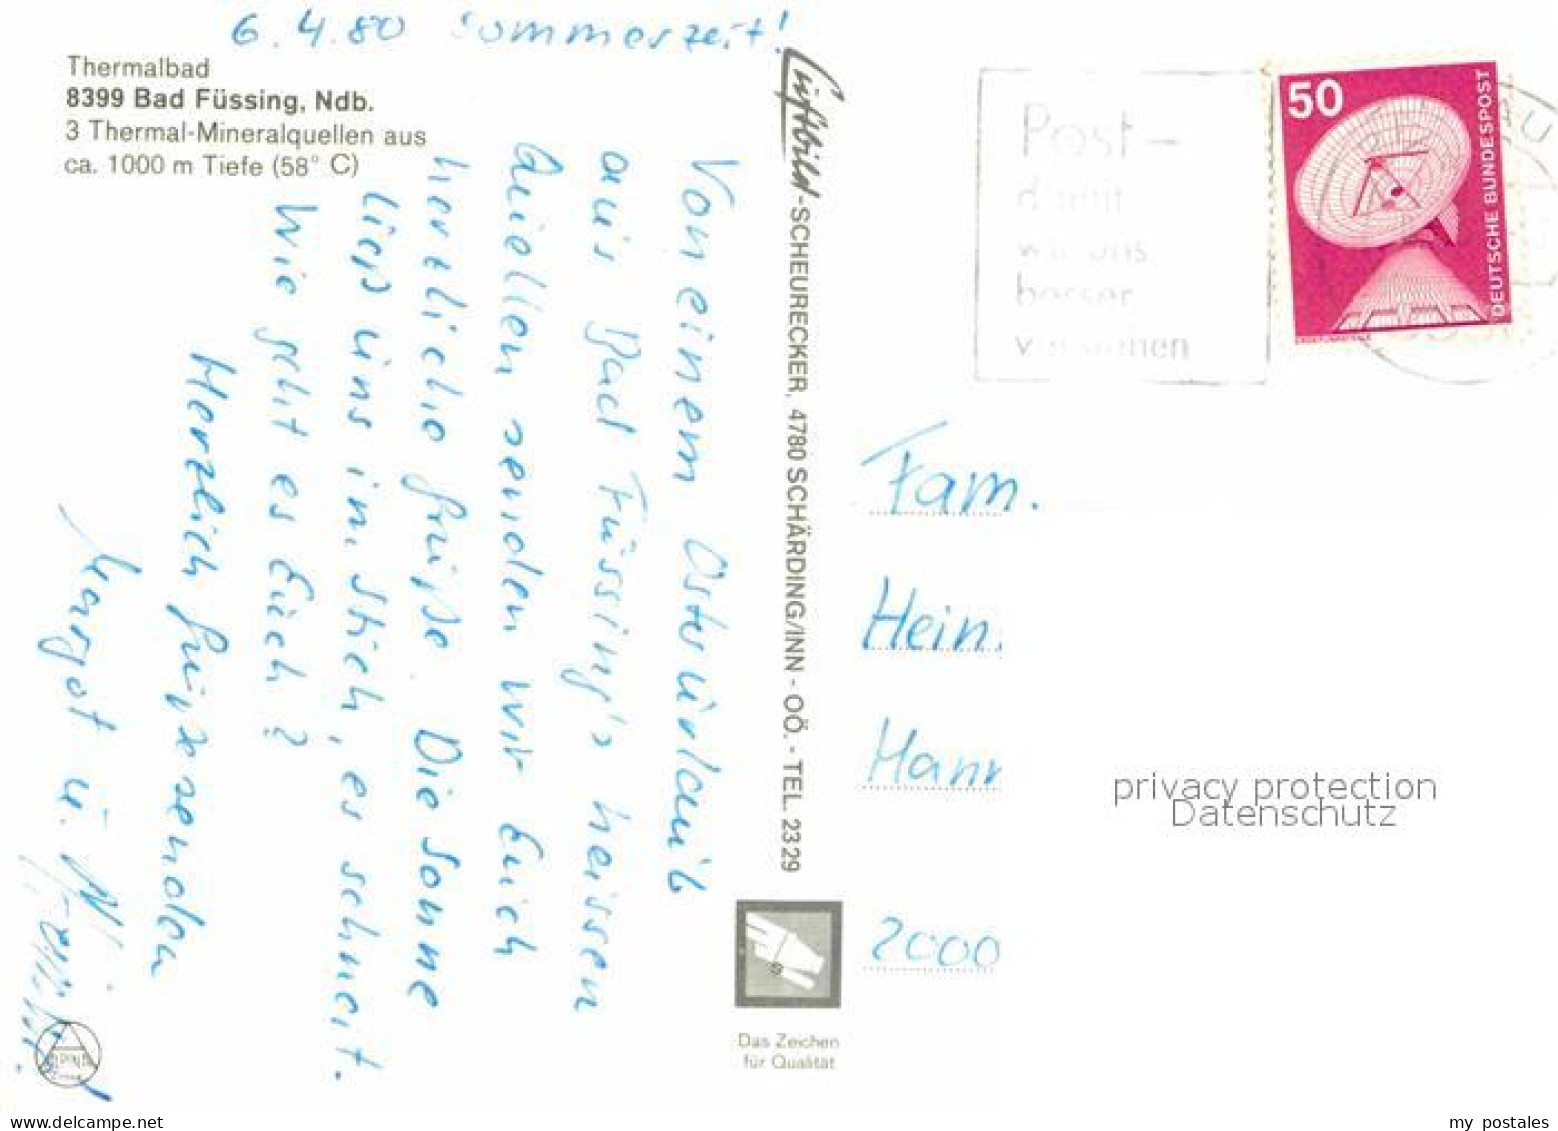 6.4.80 Sommerzeit!
Thermalbad
8399 Bad Füssing, Ndb.
3 Thermal-Mineralquellen aus
ca. 1000 m Tiefe (58° C)
Von einem Osterurlaub
aus Bad Füssing's heissen
Quellen senden wir Euch
herzliche Grüße. Die Sonne
ließ uns im Stich, es schneit.
Wie geht es Euch?
Herzlich grüssenden
Margot u.
Luftbild-SCHEURECKER, 4780 SCHÄRDING/INN - OÖ. - TEL. 2329
Das Zeichen
für Qualität
Post-
damit
wir uns
besser
verstehen
50
DEUTSCHE BUNDESPOST
Fam.
Hein
Hann
2000
privacy protection
Datenschutz
www.delcampe.net
my_postales